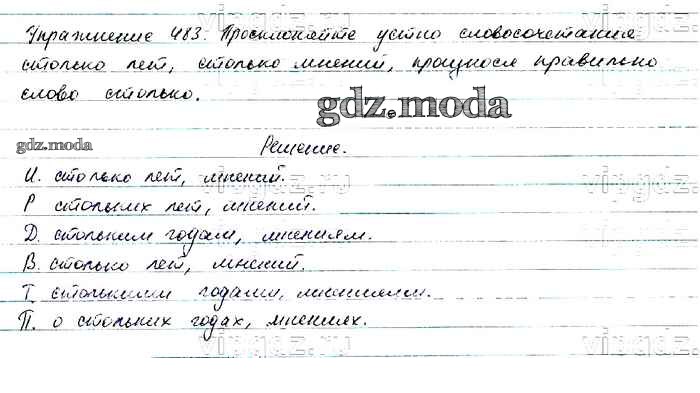 Упражнение 483. Просклоняйте устно словосочетания
столько лет, столько мнений, произнося правильно
слово столько.
gdz.moda
gdz.moda
Решение.
И. столько лет, мнений.
Р стольких лет, мнений.
Д. стольким годам, мнениям.
В. столько лет, мнений.
Т. столькими годами, мнениями.
П. о стольких годах, мнениях.
vipgdz.ru
vipgdz.ru
vipgdz.ru
vipgdz.ru
vipgdz.ru
vipgdz.ru